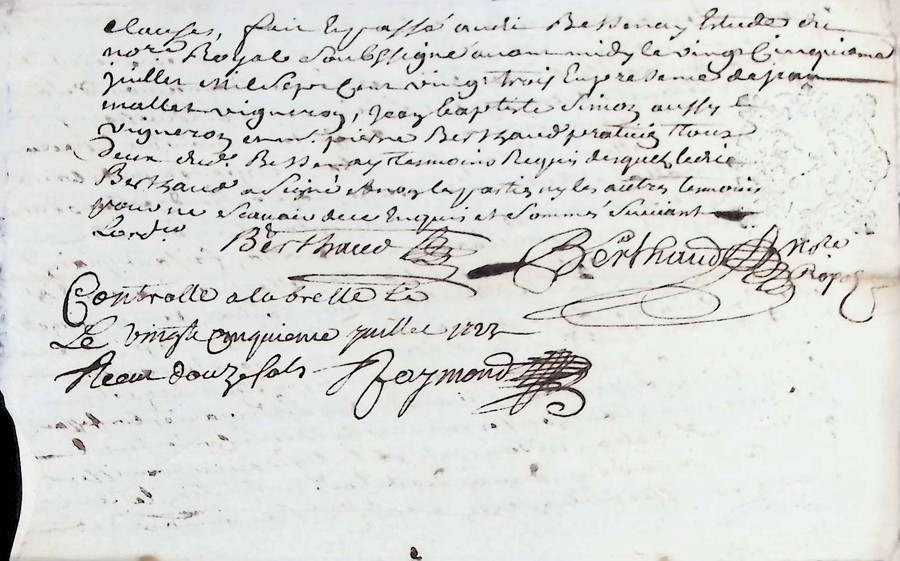 clauses, fait et passé audit Bessenay Etude du
notre Royal soubssigné avant midy le vingt Cinquieme
juillet Mil Sept Cent vingt trois En presence de jean
mallet vigneron, jean baptiste Simon aussy
vigneron et mr. pierre Berthaud praticien tous
deux dud. Bessenay tesmoins Requis desquels ledit
Berthaud a Signé et non la partie ny les autres temoins
pour ne scavoir de ce Enquis et Sommés suivant
Lord.
Berthaud
Berthaud Nore Royal
Controllé a labrelle Le
Le vingt cinquieme juillet 1723
Receu douze sols Raymond